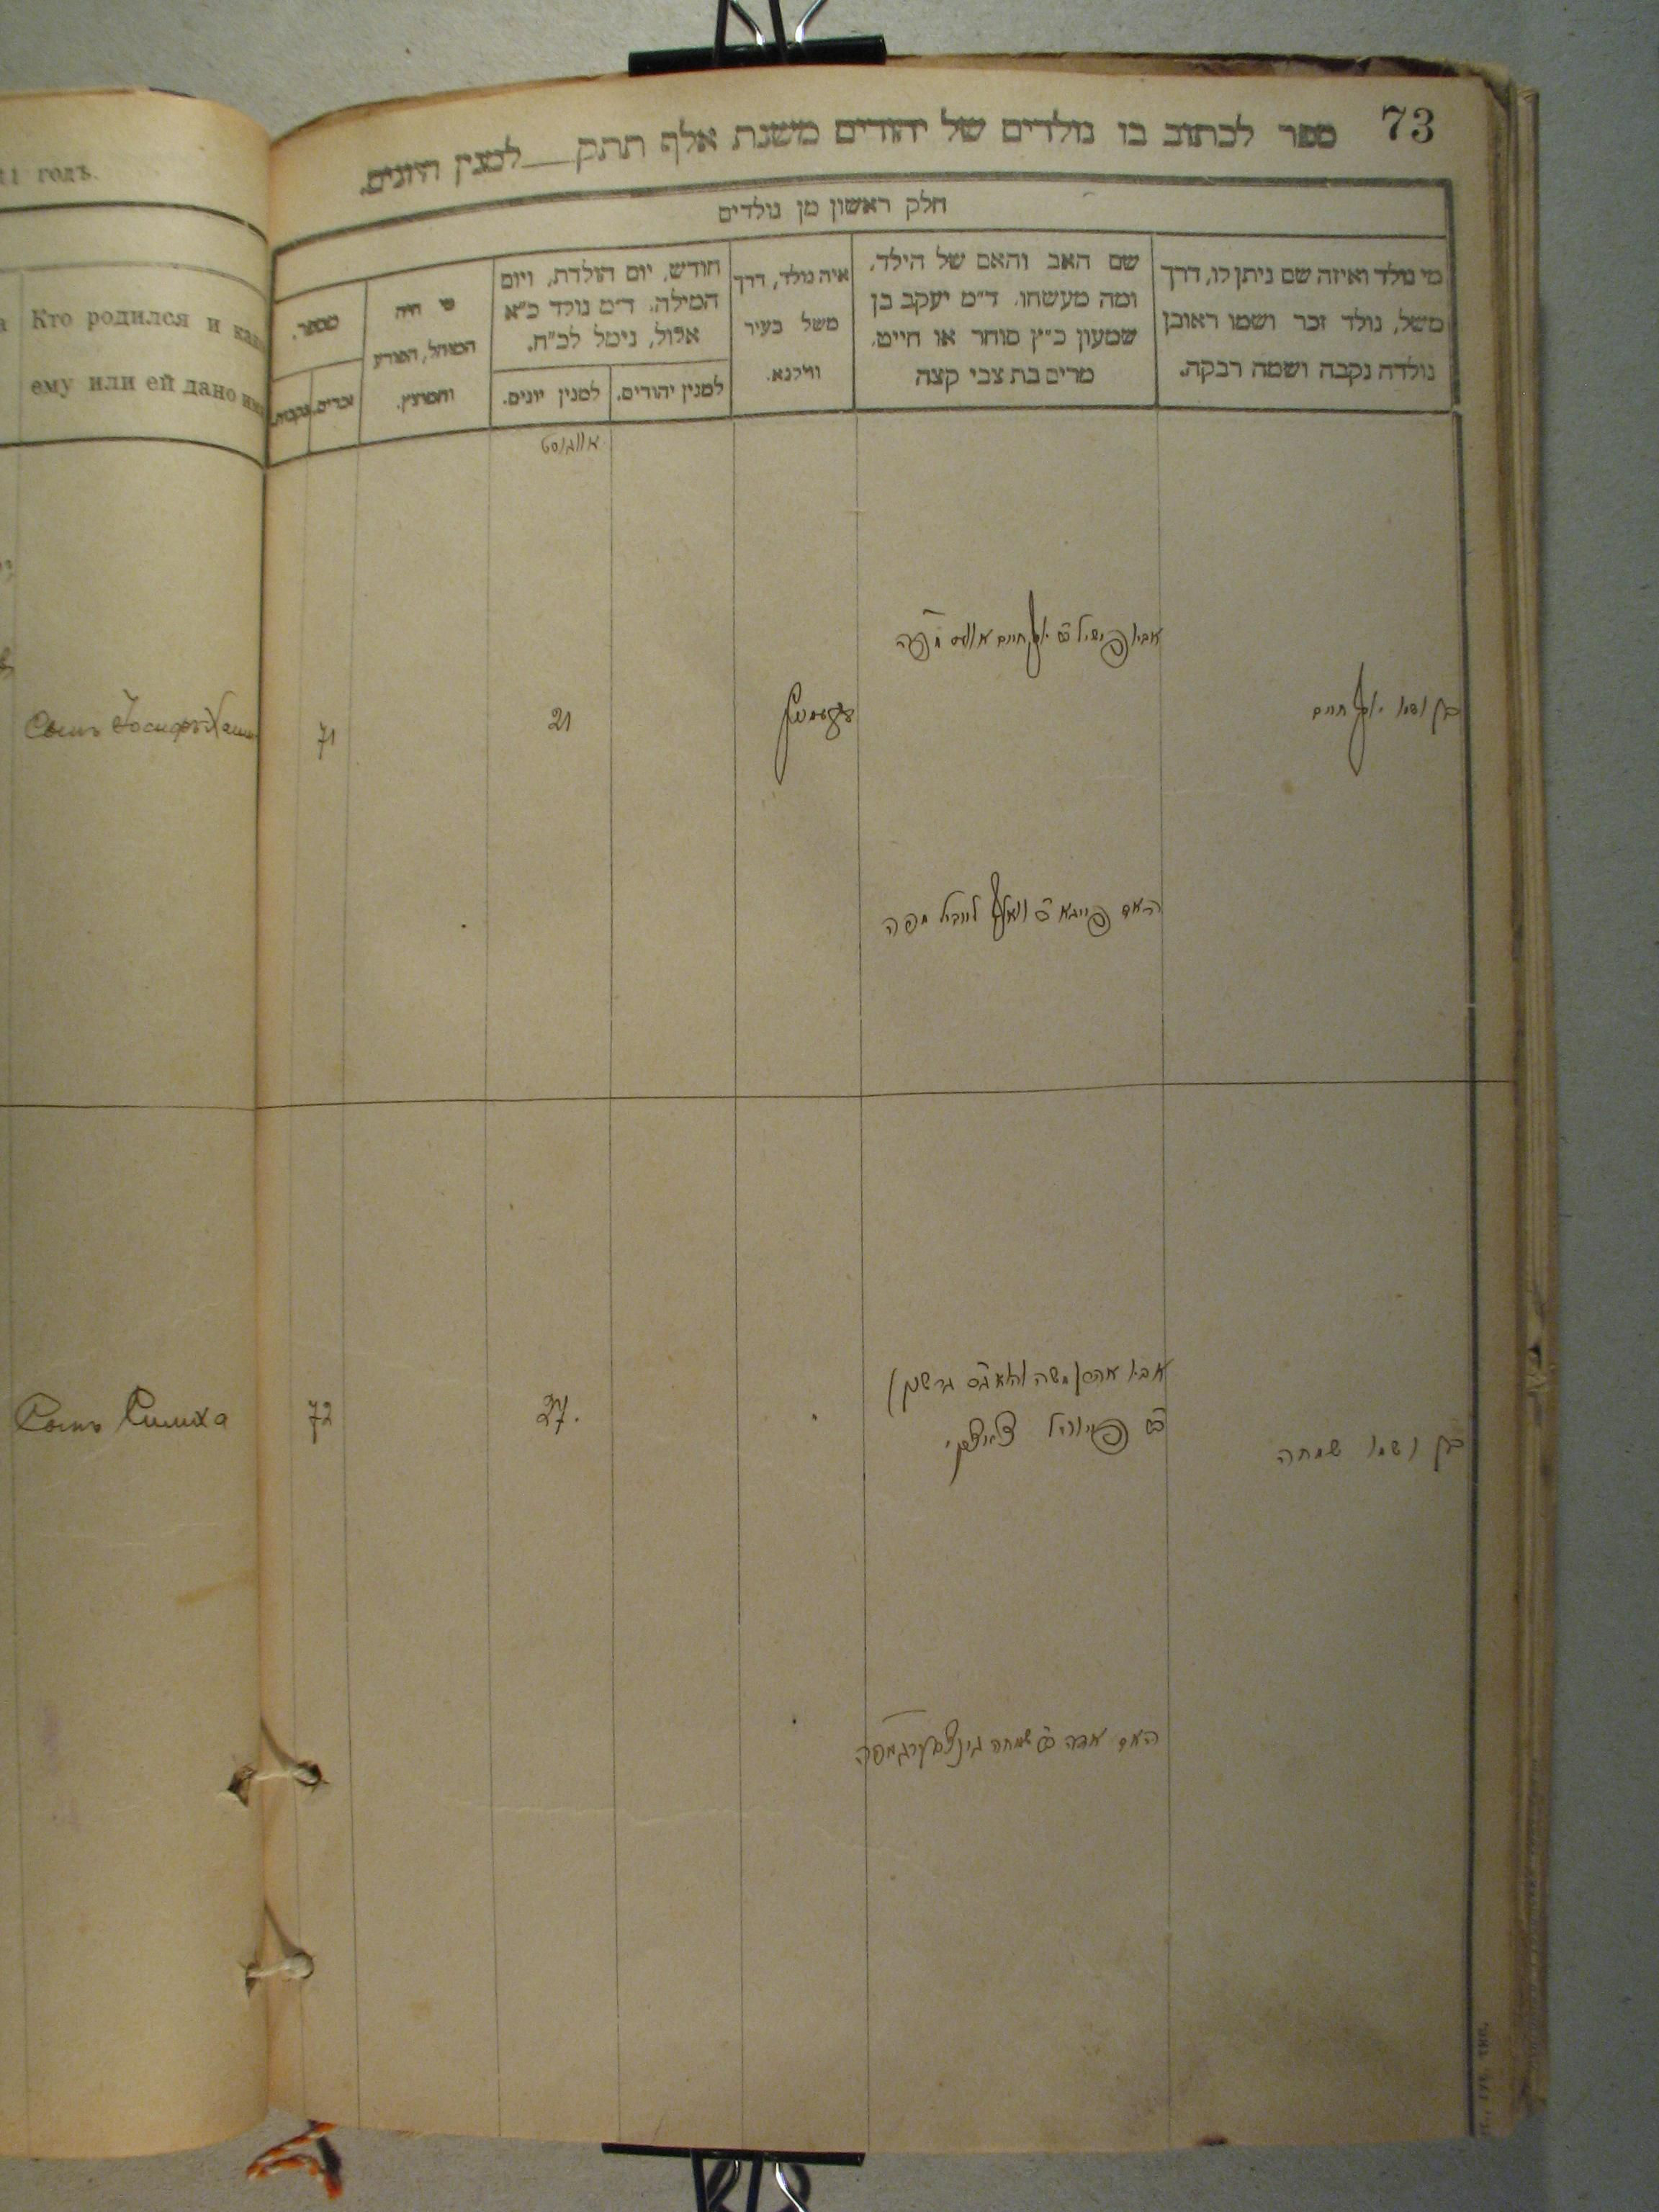 73
ספר לכתוב בו נולדים של יהודים משנת אלף תתק__למנין היונים.
חלק ראשון מן נולדים
מי נולד ואיזה שם ניתן לו, דרך
משל, נולד זכר ושמו ראובן
נולדה נקבה ושמה רבקה.
שם האב והאם של הילד,
ומה מעשהו. ד״מ יעקב בן
שמעון כ״ץ סוחר או חייט,
מרים בת צבי קצה
איה נולד, דרך
משל בעיר
ווילנא.
חודש, יום הולדת, ויום
המילה. ד״מ נולד כ״א
אלול, נימל לכ״ח.
למנין יהודים.
למנין יונים.
מי היה
המוהל, הפורע
והמוצץ.
מספר.
זכרים.
נקבות.
11 годъ.
Кто родился и како
ему или ей дано им
אווגוסט
בן ושמו יוסף חיים
אביו פישיל ב״ר יוסף חיים
האם פייגא
21
71
Сынъ Іосифъ Хаим
בן ושמו שמחה
אביו אהרן משה
האם אדה ב״ר שמחה גינצבורג מפה
27.
72
Сынъ Симха